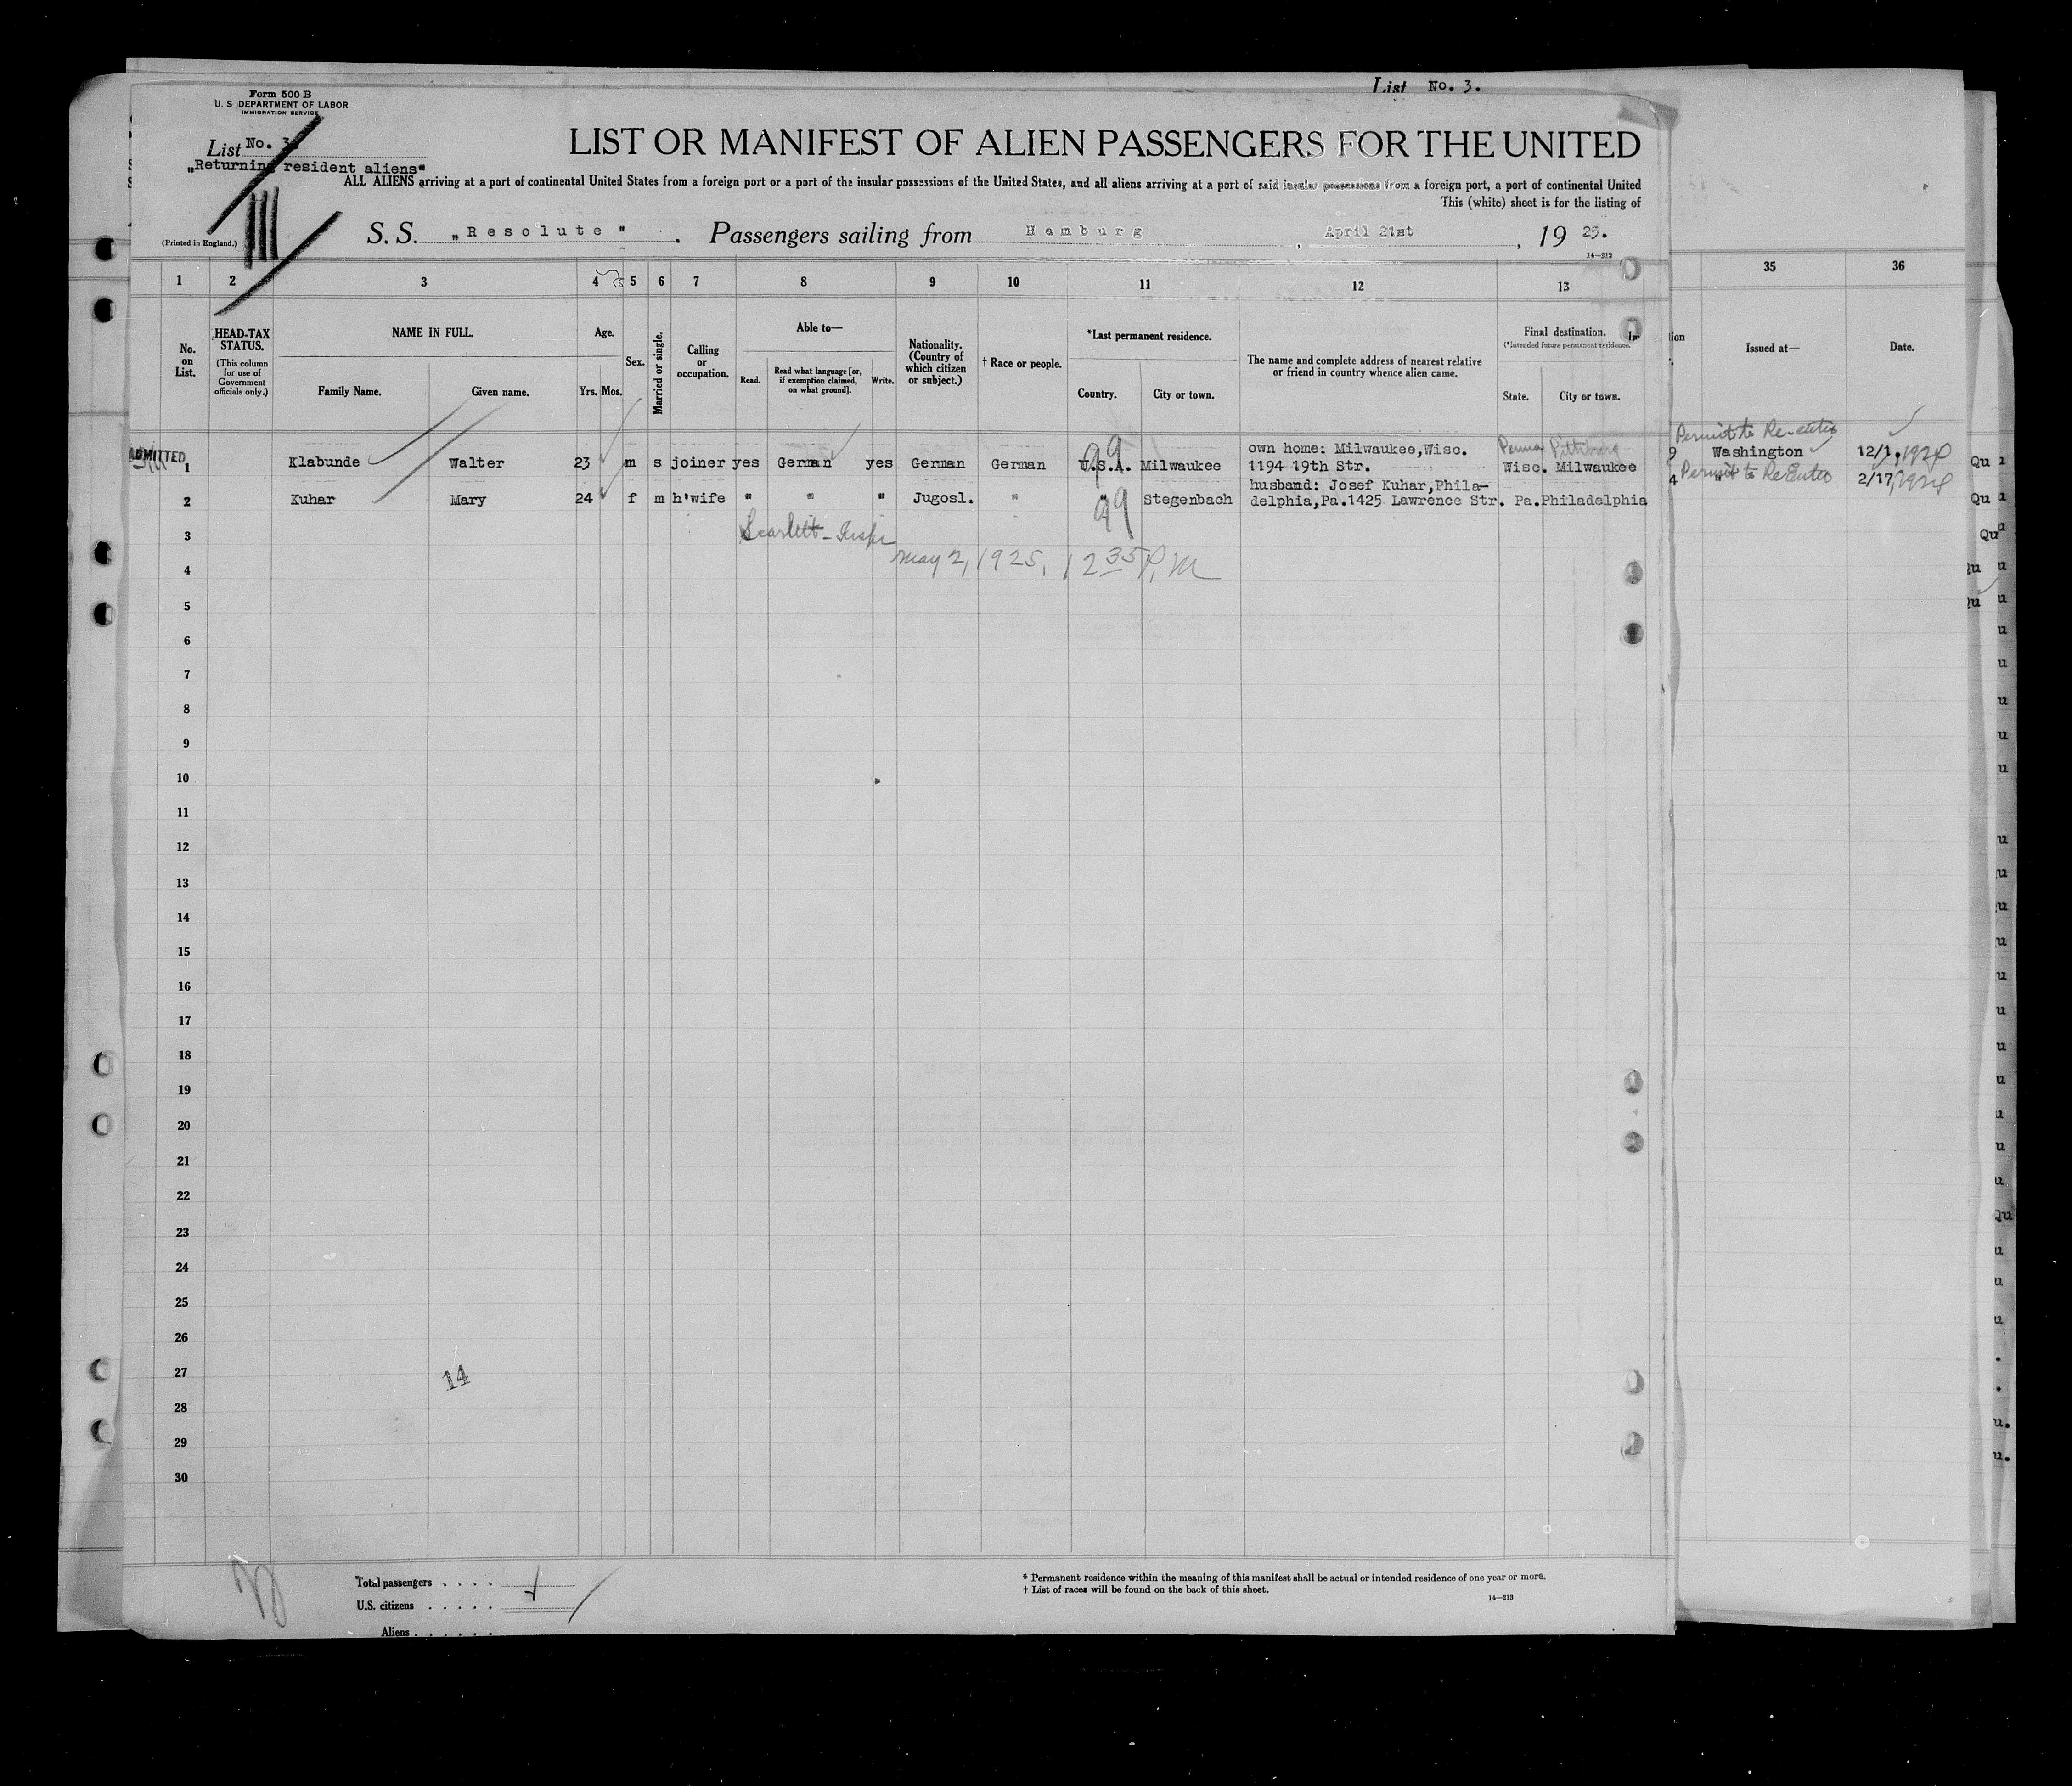 List No. 3.
Form 500 B
U. S DEPARTMENT OF LABOR
IMMIGRATION SERVICE
List No. 3
„Returning resident aliens"
LIST OR MANIFEST OF ALIEN PASSENGERS FOR THE UNITED
ALL ALIENS arriving at a port of continental United States from a foreign port or a port of the insular possessions of the United States, and all aliens arriving at a port of said insular possessions from a foreign port, a port of continental United
This (white) sheet is for the listing of
(Printed in England.)
III
S. S. „Resolute". Passengers sailing from Hamburg, April 21st, 19 25.
14—212
1 2 3 4 5 6 7 8 9 10 11 12 13 35 36
No. on List.
HEAD-TAX STATUS.
(This column for use of Government officials only.)
NAME IN FULL.
Family Name. Given name.
Age.
Yrs. Mos.
Sex.
Married or single.
Calling or occupation.
Able to—
Read. Read what language [or, if exemption claimed, on what ground]. Write.
Nationality. (Country of which citizen or subject.)
† Race or people.
*Last permanent residence.
Country. City or town.
The name and complete address of nearest relative or friend in country whence alien came.
Final destination.
(*Intended future permanent residence.)
State. City or town.
Issued at—
Date.
Permit to Re-enter
own home: Milwaukee,Wisc. Penna Pittsburg
ADMITTED 1 Klabunde Walter 23 m s joiner yes German yes German German U.S.A. Milwaukee 1194 19th Str. Wisc. Milwaukee 9 Washington 12/1.1924
99
husband: Josef Kuhar,Phila- 4 Permit to Re Enter 2/17,1924
2 Kuhar Mary 24 f m h'wife " " " Jugosl. " " Stegenbach delphia,Pa.1425 Lawrence Str. Pa.Philadelphia
99
3 Scarlett - Inspr
4 May 2, 1925, 12 35 P.M
5
6
7
8
9
10
11
12
13
14
15
16
17
18
19
20
21
22
23
24
25
26
27
14
28
29
30
Total passengers . . . .
U.S. citizens . . . . .
Aliens . . . . . .
* Permanent residence within the meaning of this manifest shall be actual or intended residence of one year or more.
† List of races will be found on the back of this sheet.
14—213